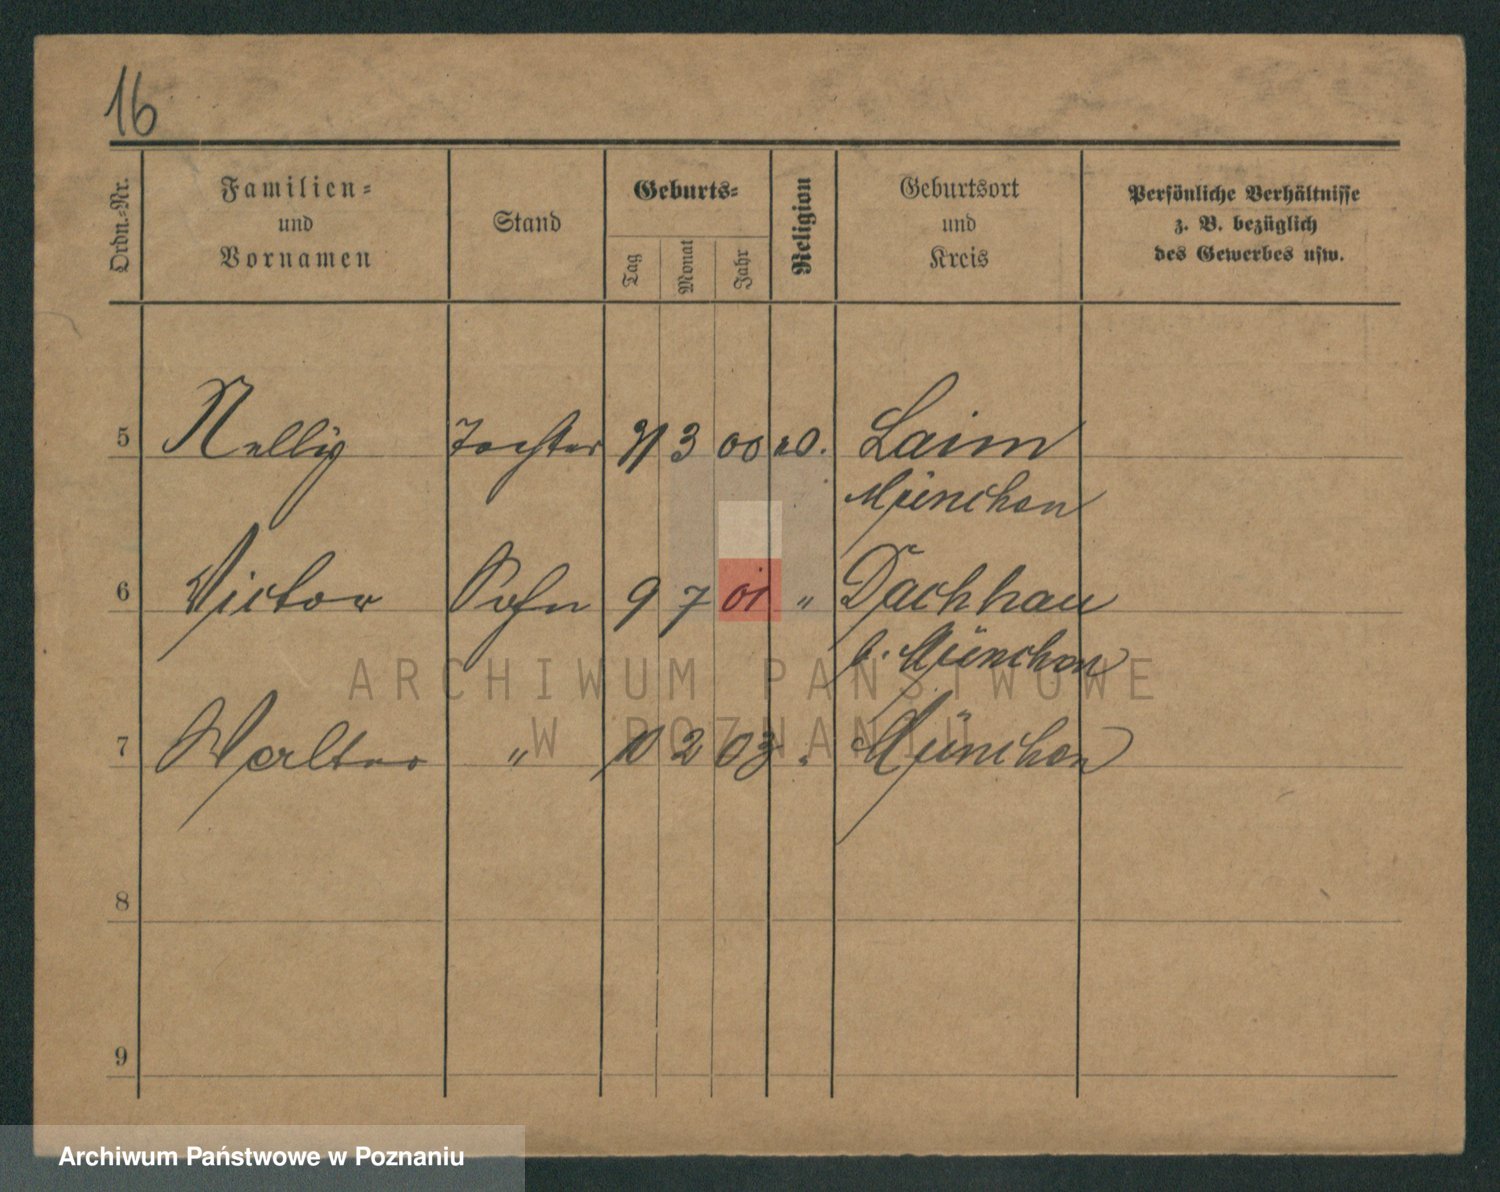 16
Ordn.-Nr. Familien- und Vornamen Stand Geburts- Tag Monat Jahr Religion Geburtsort und Kreis Persönliche Verhältnisse z. B. bezüglich des Gewerbes usw.
5 Nelly Tochter 3 00 Laim
München
6 Victor Sohn 9 7 01 " Dachhau
b. München
7 Walter " 10 2 03 München
8
9
ARCHIWUM PAŃSTWOWE
W POZNANIU
Archiwum Państwowe w Poznaniu